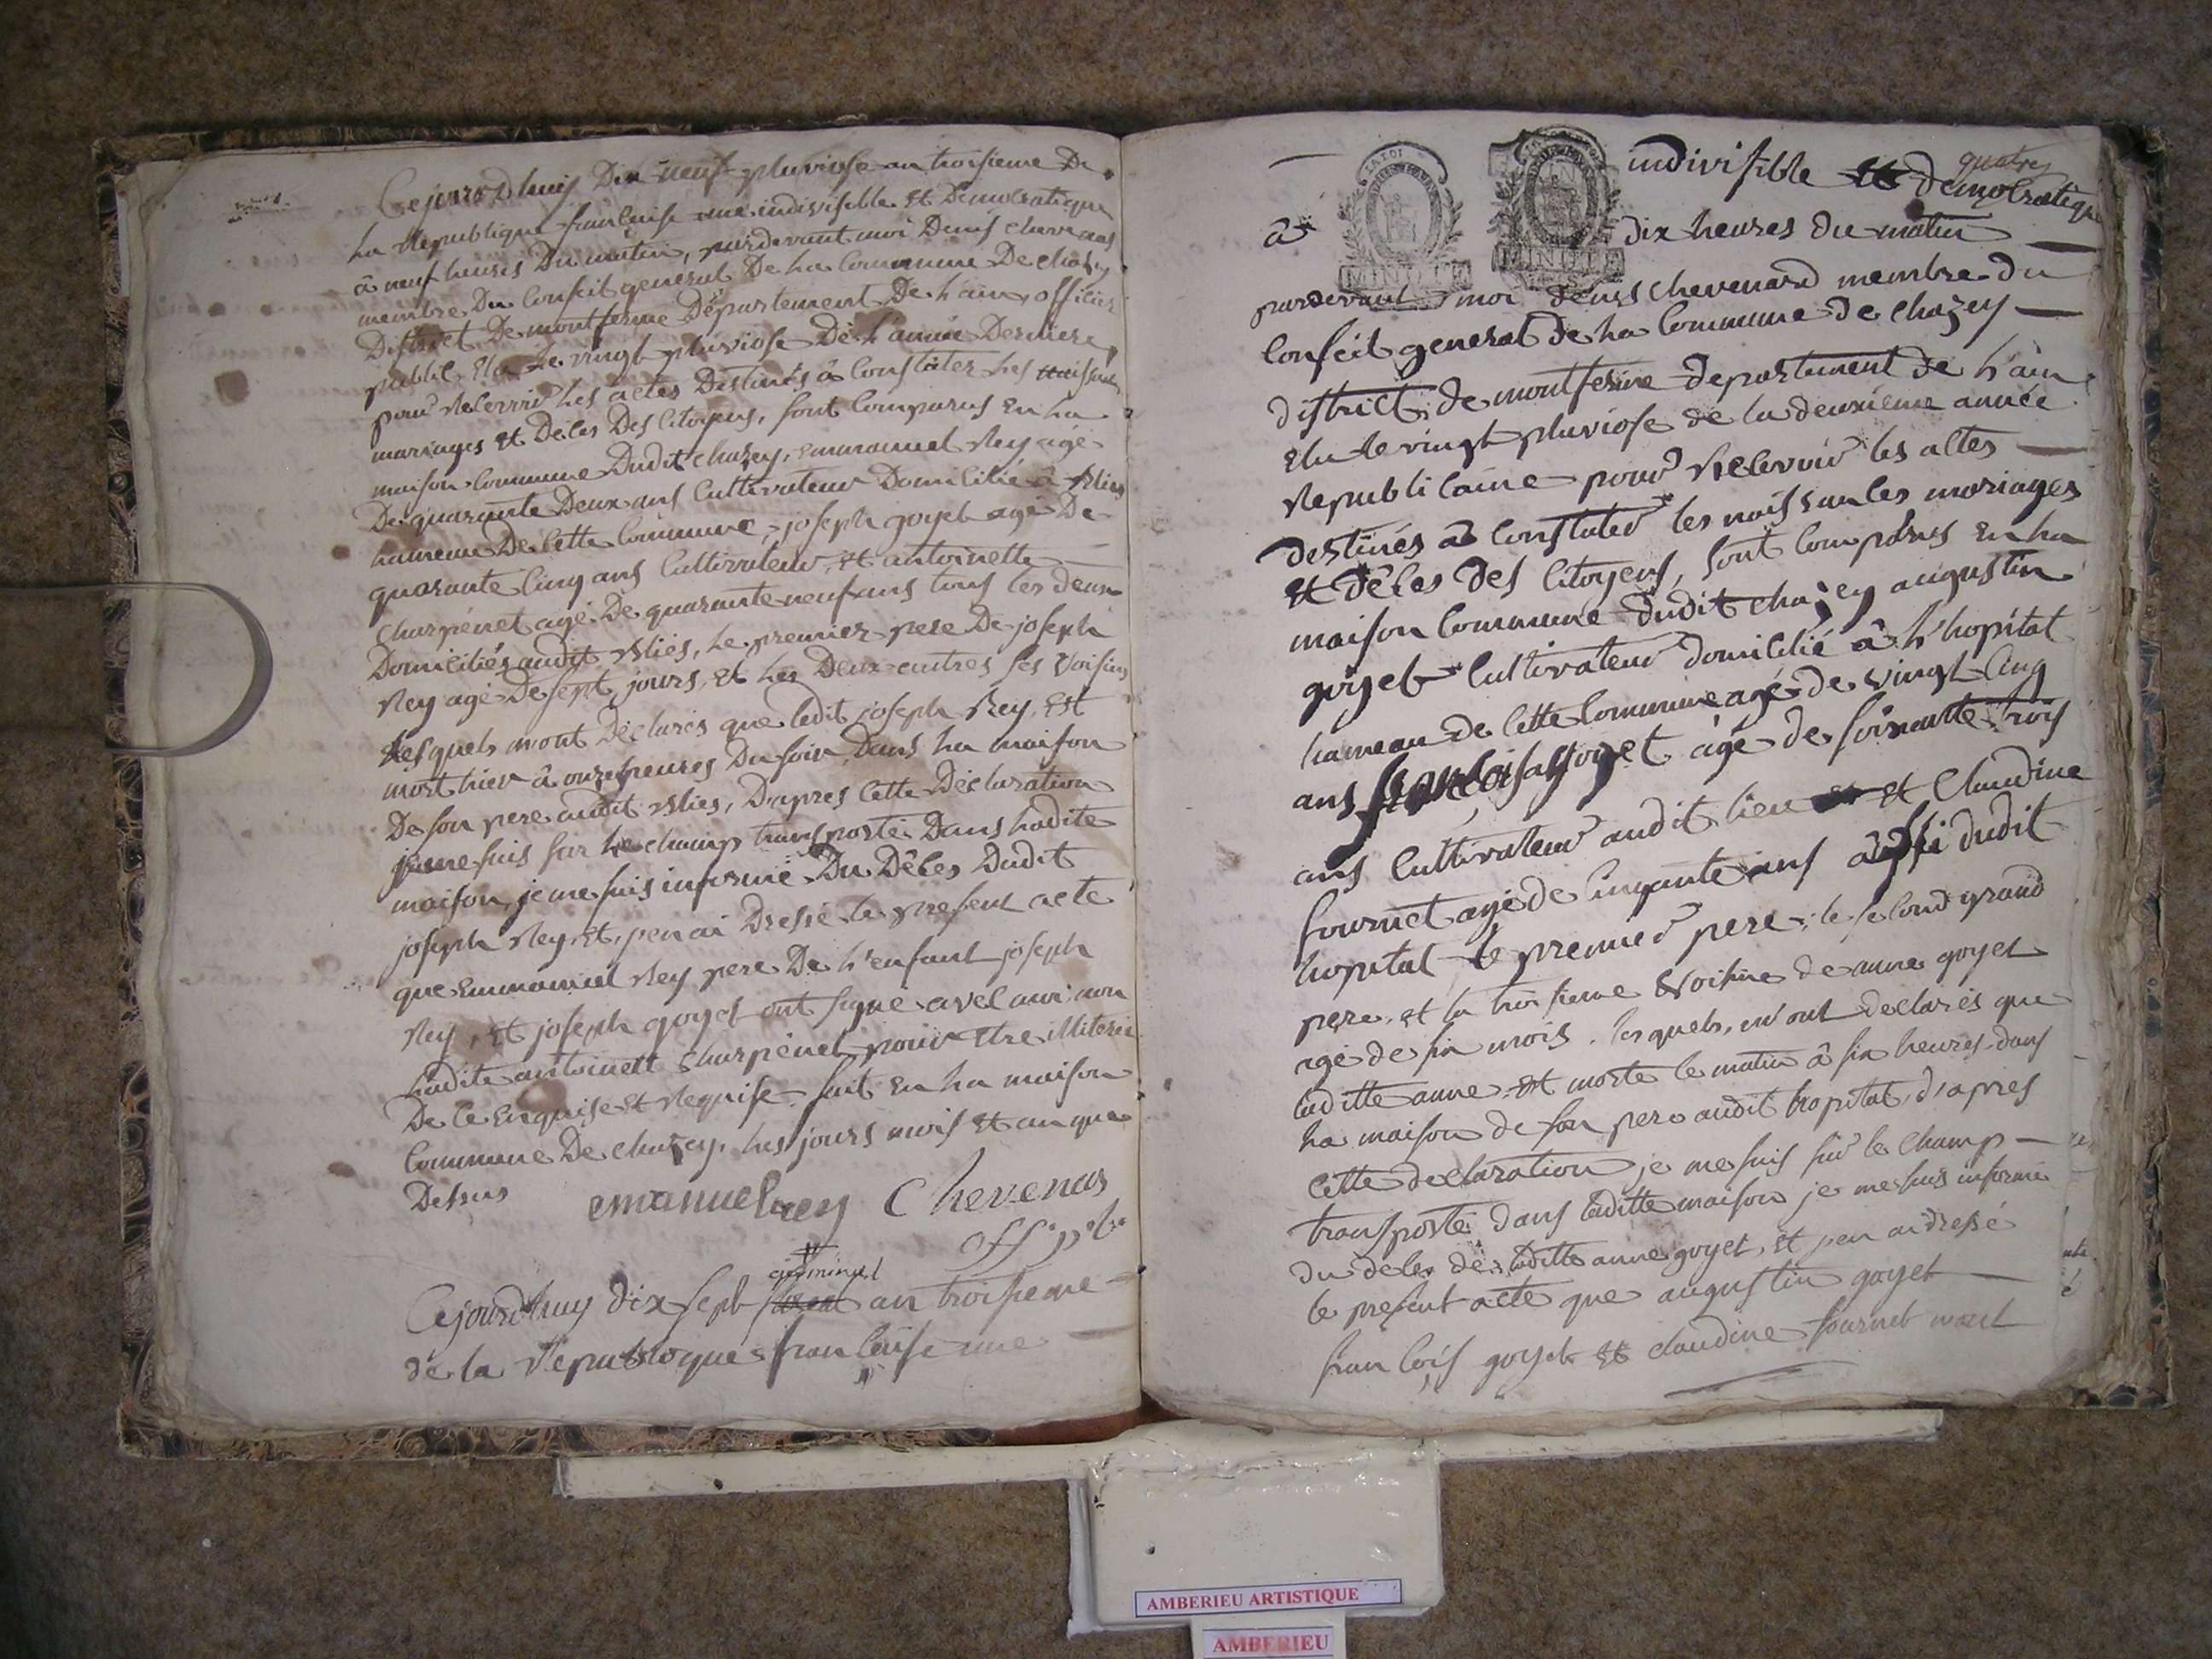 Cejourd'huy Dix neuf pluviose an troisieme De
la Republique francaise une indivisible et Democratique
à neuf heures Du matin, pardevant moi Denis chevenas
membre Du Conseil general De la Commune De chazey
District De montferme Département De l'ain, officier
public Elu le vingt pluviose De l'année Derniere,
pour Recevoir les actes Destinés à Constater les
mariages et Déces Des Citoyens, sont Comparus En la
maison Commune Dudit chazey, emmanuel Rey agé
De quarante Deux ans Cultivateur Domicilié à Rlies
hameau De Cette Commune, joseph goyet agé De
quarante Cinq ans Cultivateur, et antoinette
Charpénet agé De quarante neuf ans tous les deux
Domiciliés audit Rlies, le premier pere De joseph
Rey agé De sept jours, et les Deux autres ses Voisins
Lesquels m'ont Déclarés que ledit joseph Rey Est
mort hier à onze heures Du soir, Dans la maison
De son pere audit Rlies, D'apres Cette Déclaration
je me suis sur le champ transporté Dans ladite
maison, je me suis informé Du Déces Dudit
joseph Rey et j'en ai Dressé le present acte
que Emmanuel Rey pere De l'enfant joseph
Rey, et joseph goyet ont signé avec moi non
ladite antoinett Charpénet pour être illiteré
De Ce Enquise et Requise. fait En la maison
Commune De chazey, les jours mois et an que
Dessus emanuel rey Chevenas
off p
germinal
Cejourdhuy dix sept an troisieme
de la Republique francaise une
quatre
indivisible et democratique
à dix heures du matin
pardevant moi denis chevenard membre du
Conseil general de la Commune de chazey
district de montferme departement de l'ain
elu le vingt pluviose de la deuxieme année
Republicaine pour Recevoir les actes
destinés à Constater les naissances mariages
et déces des Citoyens, sont Comparus En la
maison Commune dudit chazey augustin
goyet Cultivateur domicilié à l'hopital
hameau de Cette Commune agé de vingt Cinq
ans francois goyet agé de soixante trois
ans Cultivateur audit lieu et Claudine
fournet agé de Cinquante ans aussi dudit
hopital le premier pere, le second grand
pere, et la troisieme Voisine de anne goyet
agé de six mois. lesquels m'ont declarés que
laditte anne est morte le matin à six heures dans
la maison de son pere audit hopital, d'apres
Cette declaration je me suis sur le Champ
transporté dans laditte maison je me suis informé
du déces de laditte anne goyet, et j'en ai dressé
le present acte que augustin goyet
francois goyet et claudine fournet n'ont
MINUTE
MINUTE
AMBERIEU ARTISTIQUE
AMBERIEU